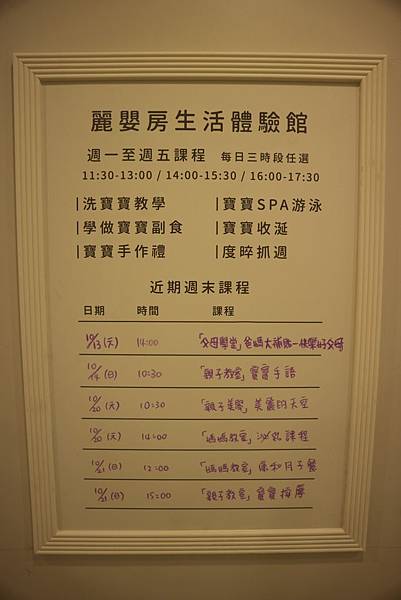 麗嬰房生活體驗館
週一至週五課程 每日三時段任選
11:30-13:00 / 14:00-15:30 / 16:00-17:30
|洗寶寶教學 |寶寶SPA游泳
|學做寶寶副食 |寶寶收涎
|寶寶手作禮 |度晬抓週
近期週末課程
日期 時間 課程
10/13 14:00 「父母學堂」爸媽大補帖-快樂好父母
10/14 (日) 10:30 「親子教室」寶寶手語
10/20 10:30 「親子美學」美麗的天空
10/20 14:00 「媽媽教室」泌乳課程
10/21 (日) 12:00 「媽媽教室」月子餐
10/21 (日) 15:00 「親子教室」寶寶按摩